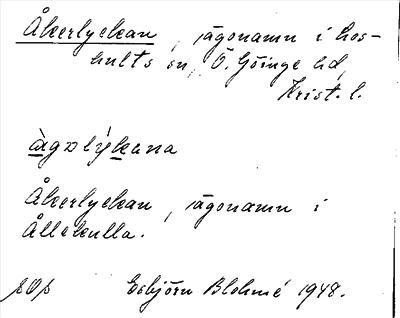 Åkerlyckan, ägonamn i Los-
hults sn, Ö. Göinge hd,
Krist. l.
àgəlýkana
Åkerlyckan, ägonamn i
Ållekulla.
Esbjörn Blohmé 1948.